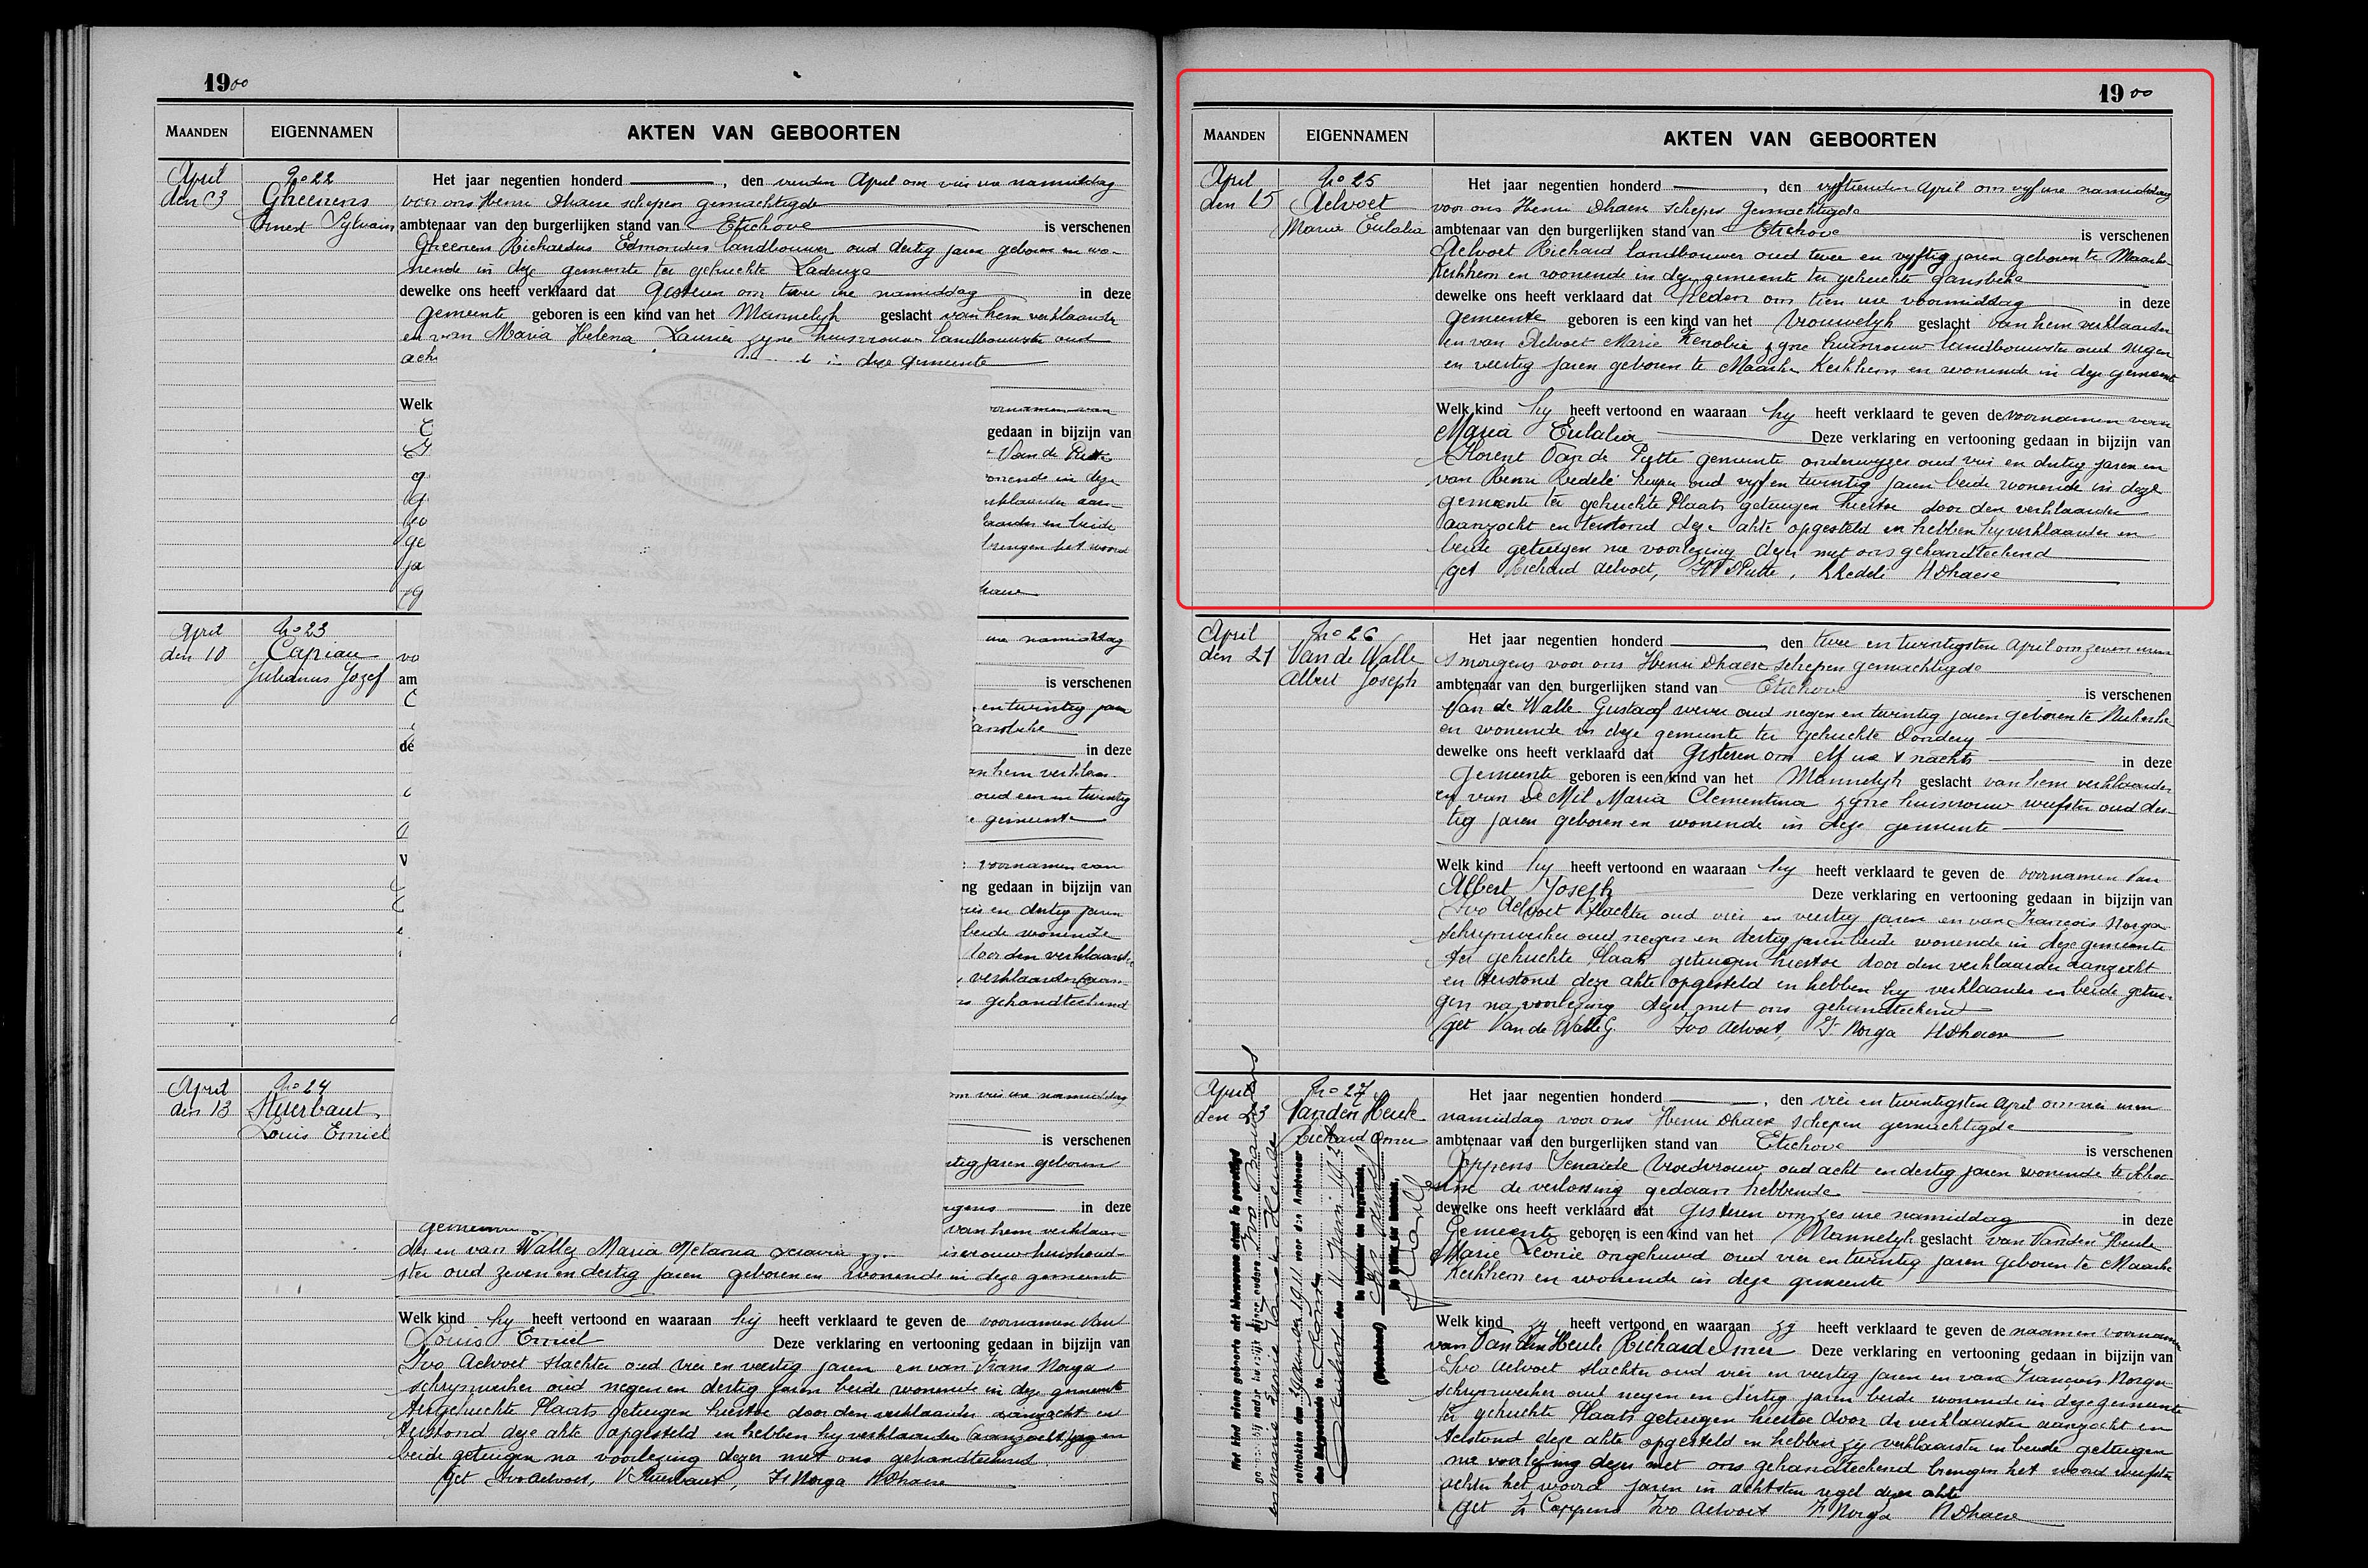 1900
MAANDEN EIGENNAMEN AKTEN VAN GEBOORTEN
April
den 3
No 22
Gheenens
Ernest Sylvain
Het jaar negentien honderd , den vierden April om vier ure namiddag
voor ons Henri Dhaese schepen gemachtigde
ambtenaar van den burgerlijken stand van Etichove is verschenen
Gheenens Richardus Edmondus landbouwer oud dertig jaren geboren en wo-
nende in deze gemeente ter gehuchte Ladeuze
dewelke ons heeft verklaard dat Gisteren om twee ure namiddag in deze
gemeente geboren is een kind van het Mannelyk geslacht van hem verklaarder
en van Maria Helena Laurier zyne huisvrouw landbouwster oud
ach
in deze gemeente
Welk
voornamen van
gedaan in bijzijn van
Van de Putte
wonende in deze
beide
brengen het woord
April
den 10
No 23
Capiau
Julianus Jozef
ure namiddag
is verschenen
en twintig jaren
in deze
van hem verklaar-
oud een en twintig
gemeente
voornamen van
ng gedaan in bijzijn van
dertig jaren
beide wonende
door den verklaarder
gehandteekend
April
den 13
No 24
Stuerbaut
Louis Emiel
om vier ure namiddag
is verschenen
tig jaren geboren
in deze
gemeen
van hem verklaar-
der en van Wallez Maria Melania
huishoud-
ster oud zeven en dertig jaren geboren en wonende in deze gemeente
Welk kind hy heeft vertoond en waaraan hij heeft verklaard te geven de voornamen van
Louis Emiel Deze verklaring en vertooning gedaan in bijzijn van
Ivo Aelvoet slachter oud vier en veertig jaren en van Frans Norga
schrynwerker oud negen en dertig jaren beide wonende in deze gemeente
ter gehuchte Plaats getuigen hiertoe door den verklaarder aanzocht en
terstond deze akte opgesteld en hebben hy verklaarder en
beide getuigen na voorlezing dezer met ons gehandteekend.
(get Ivo Aelvoet, V Stuerbaut, Fr Norga HDhaese
1900
MAANDEN EIGENNAMEN AKTEN VAN GEBOORTEN
April
den 15
No 25
Aelvoet
Marie Eulalia
Het jaar negentien honderd , den vyftienden April om vyf ure namiddag
voor ons Henri Dhaese schepen gemachtigde
ambtenaar van den burgerlijken stand van Etichove is verschenen
Aelvoet Richard landbouwer oud twee en vyftig jaren geboren te Maarke
Kerkhem en wonende in deze gemeente ter gehuchte Gansbeke
dewelke ons heeft verklaard dat Heden om tien ure voormiddag in deze
gemeente geboren is een kind van het Vrouwelyk geslacht van hem verklaarder
en van Aelvoet Marie Zenobie zyne huisvrouw landbouwster oud negen
en veertig jaren geboren te Maarke Kerkhem en wonende in deze gemeente
Welk kind hy heeft vertoond en waaraan hy heeft verklaard te geven de voornamen van
Maria Eulalia Deze verklaring en vertooning gedaan in bijzijn van
Florent Van de Putte gemeente onderwyzer oud vier en dertig jaren en
van Remi Redelé kuiper oud vyf en twintig jaren beide wonende in deze
gemeente ter gehuchte Plaats getuigen hiertoe door den verklaarder
aanzocht en terstond deze akte opgesteld en hebben hy verklaarder en
beide getuigen na voorlezing dezer met ons gehandteekend
(get Richard Aelvoet, FVDPutte, RRedelé HDhaese
April
den 21
No 26
Van de Walle
Albert Joseph
Het jaar negentien honderd , den twee en twintigsten April om zeven uren
s morgens voor ons Henri Dhaese schepen gemachtigde
ambtenaar van den burgerlijken stand van Etichove is verschenen
Van de Walle Gustaaf wever oud negen en twintig jaren geboren te Nukerke
en wonende in deze gemeente ter gehuchte Dondery
dewelke ons heeft verklaard dat Gisteren om elf ure s nachts in deze
gemeente geboren is een kind van het Mannelyk geslacht van hem verklaarder
en van De Mil Maria Clementina zyne huisvrouw weefster oud der-
tig jaren geboren en wonende in deze gemeente
Welk kind hy heeft vertoond en waaraan hy heeft verklaard te geven de voornamen van
Albert Joseph Deze verklaring en vertooning gedaan in bijzijn van
Ivo Aelvoet slachter oud vier en veertig jaren en van François Norga
schrynwerker oud negen en dertig jaren beide wonende in deze gemeente
ter gehuchte Plaats getuigen hiertoe door den verklaarder aanzocht
en terstond deze akte opgesteld en hebben hy verklaarder en beide getui-
gen na voorlezing dezer met ons gehandteekend
(get Van de Walle G. Ivo Aelvoet, F. Norga HDhaese
April
den 23
No 27
Vanden Heule
Richard Omer
Het jaar negentien honderd , den vier en twintigsten April om vier uren
namiddag voor ons Henri Dhaese schepen gemachtigde
ambtenaar van den burgerlijken stand van Etichove is verschenen
Coppens Zenaide Vroedvrouw oud acht en dertig jaren wonende te
de verlossing gedaan hebbende
dewelke ons heeft verklaard dat Gisteren om zes ure namiddag in deze
Gemeente geboren is een kind van het Mannelyk geslacht van Vanden Heule
Marie Leonie ongehuwd oud vier en twintig jaren geboren te Maarke
Kerkhem en wonende in deze gemeente
Welk kind zy heeft vertoond en waaraan zy heeft verklaard te geven de naam en voornamen
van Van den Heule Richard Omer Deze verklaring en vertooning gedaan in bijzijn van
Ivo Aelvoet slachter oud vier en veertig jaren en van François Norga
schrynwerker oud negen en dertig jaren beide wonende in deze gemeente
ter gehuchte Plaats getuigen hiertoe door de verklaarster aanzocht en
terstond deze akte opgesteld en hebben zy verklaarster en beide getuigen
na voorlezing dezer met ons gehandteekend brengen het woord weefster
achter het woord jaren in achtsten regel dezer akte
(get Z Coppens Ivo Aelvoet F Norga HDhaese